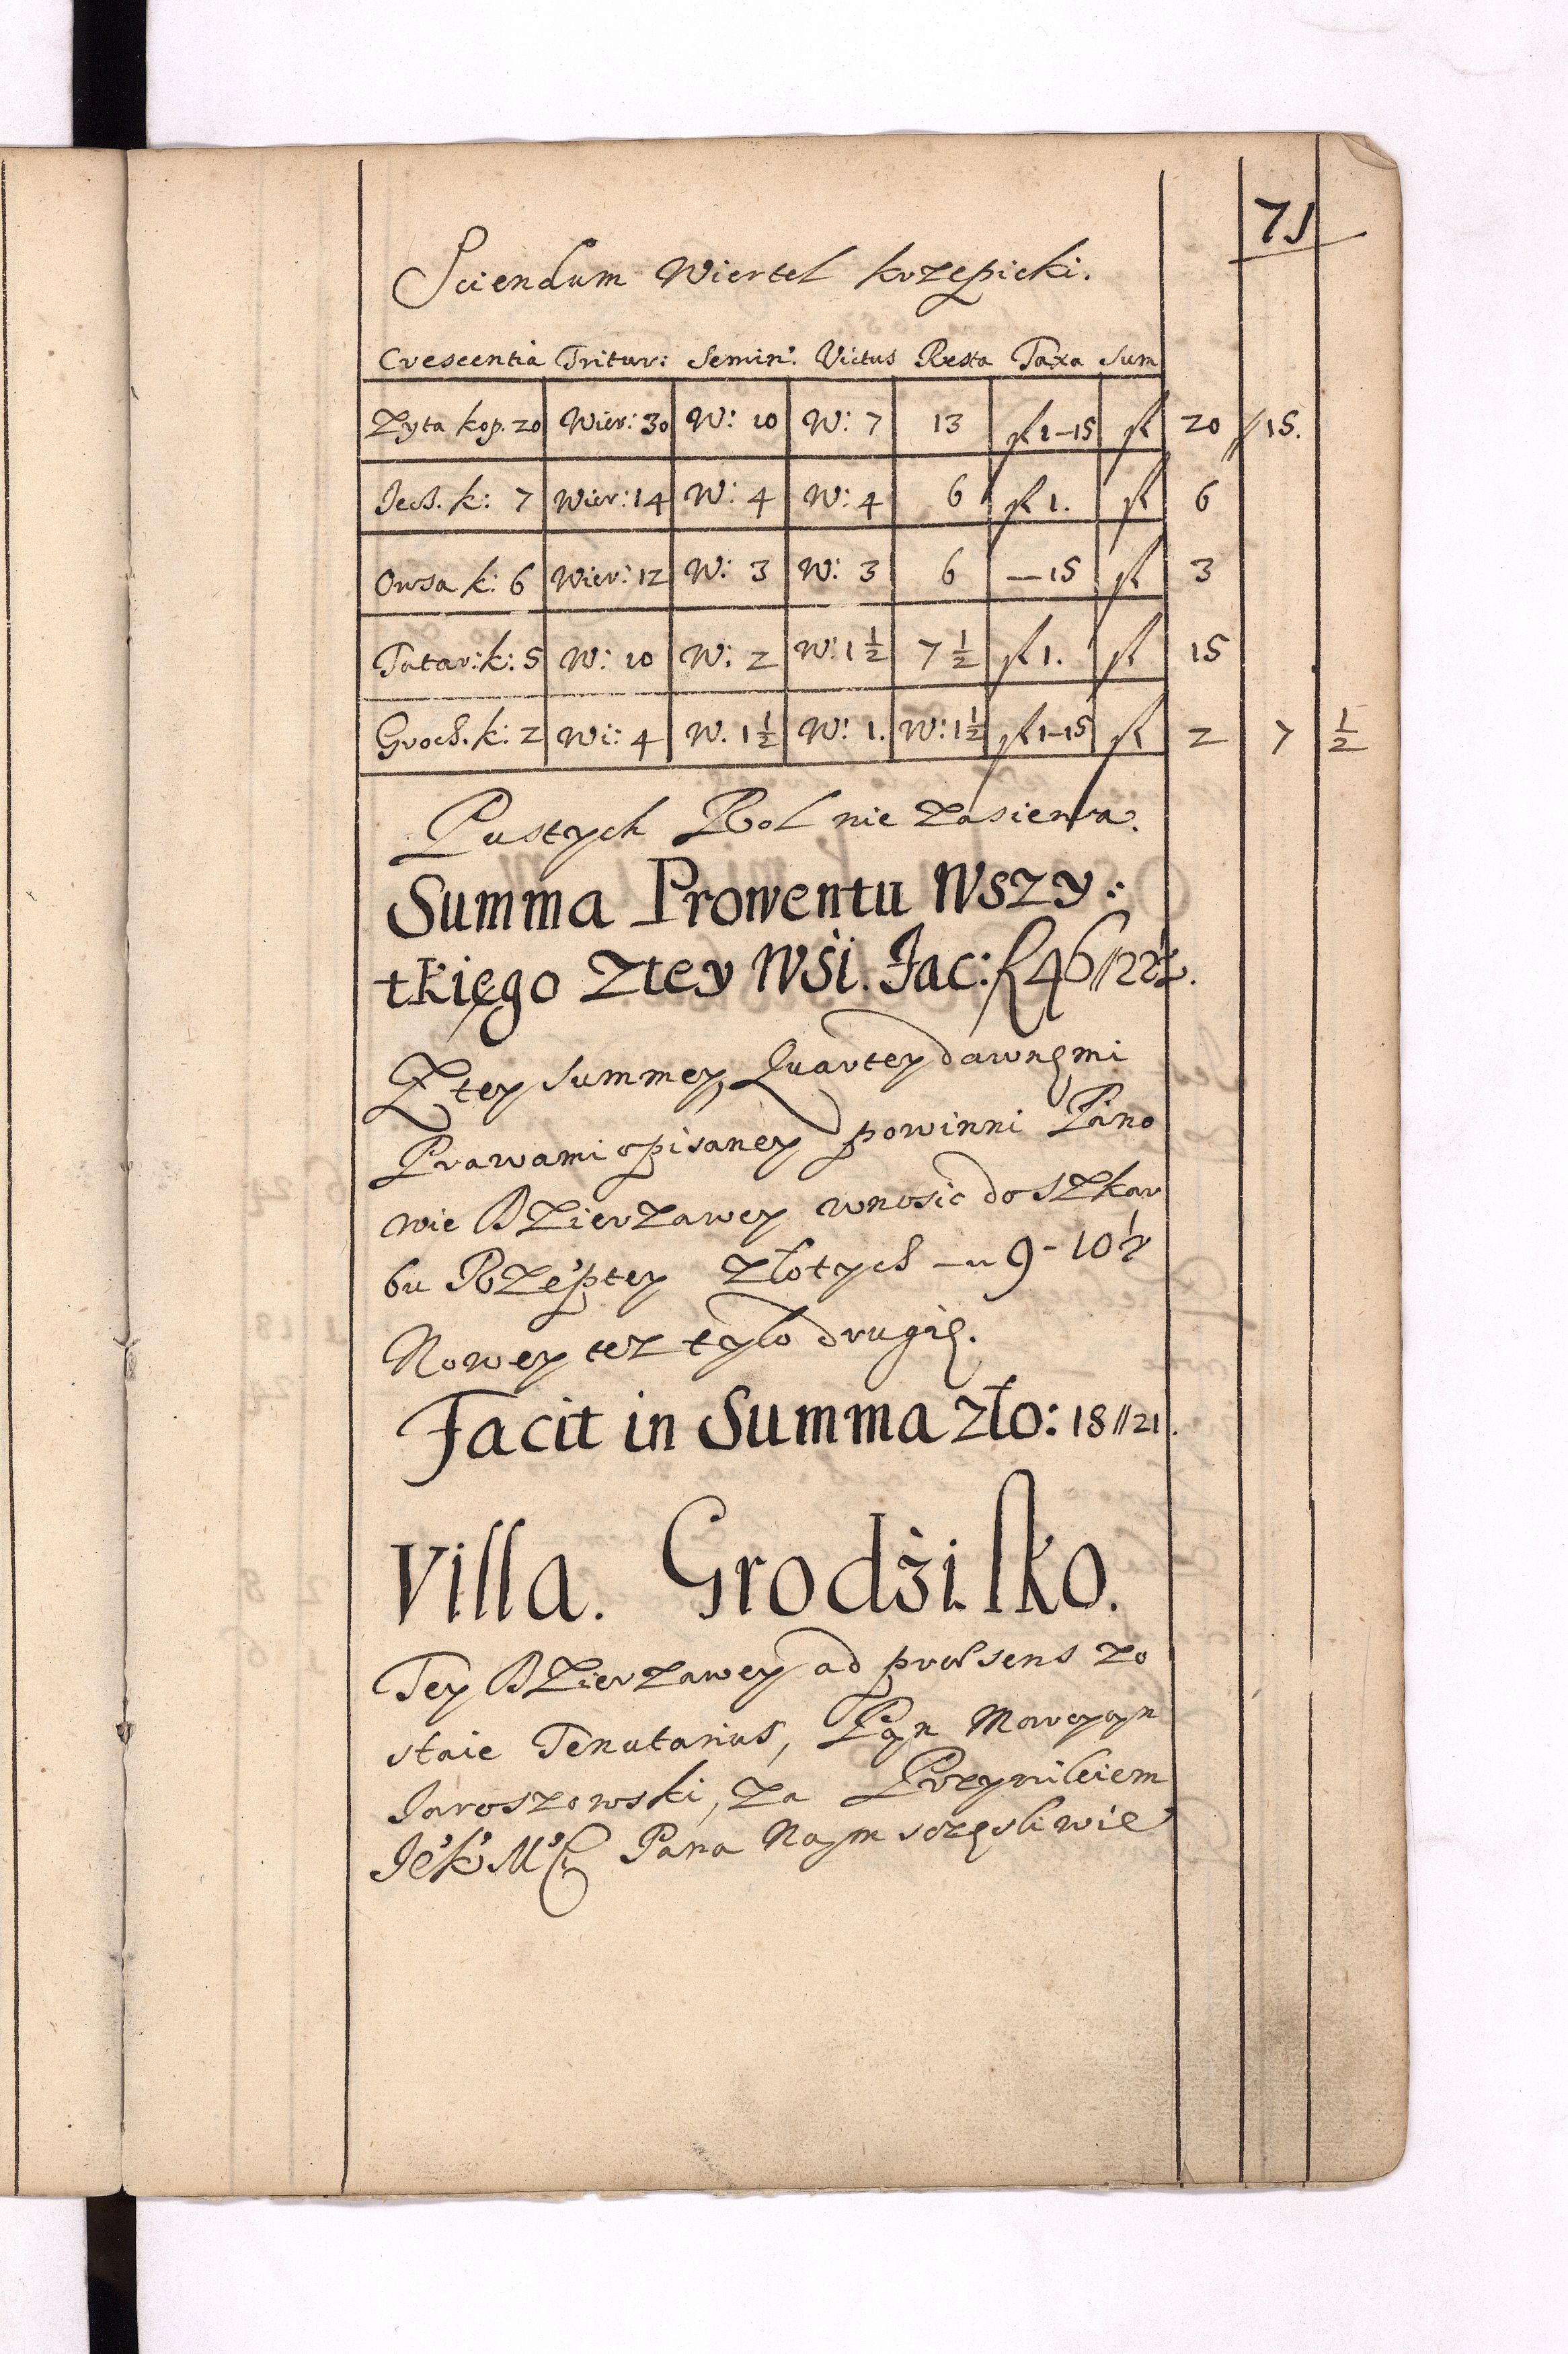 71
Sciendum Wiertel krzepicki.
Crescentia Tritur: Semin: Victus Resta Taxa Sum
Zyta kop. 20 Wier: 30 W: 10 W: 7 13 fl 1–15 fl 20 // 15.
Jecż. k: 7 Wier: 14 W: 4 W: 4 6 fl 1. fl 6
Owsa k: 6 Wier: 12 W: 3 W: 3 6 —15 fl 3
Tatar: k: 5 W: 10 W: 2 W: 1½ 7½ fl 1. fl 15
Groch. k: 2 Wi: 4 W. 1½ W: 1. W: 1½ fl 1–15 fl 2 7 ½
Pustych Rol nie zasiewa.
Summa Prowentu Wszy:
tkięgo Ztey Wśi. Fac: fl 46//22½.
Z tey summey, Quartey dawnęmi
Prawami opisaney powinni Pano
wie Dzierzawcy wnosic do Szkar
bu Rzeptey Złotych 9–10½
Nowey tez tylo drugię.
Facit in Summa zło: 18//21.
Villa. Grodżisko.
Tey Dzierzawey ad præsens zo
staie Tenutarius, Pan Marcyan
Jaroszowski, za Przywileiem
Je° K° M°ci Pana Naym szczęsliwie